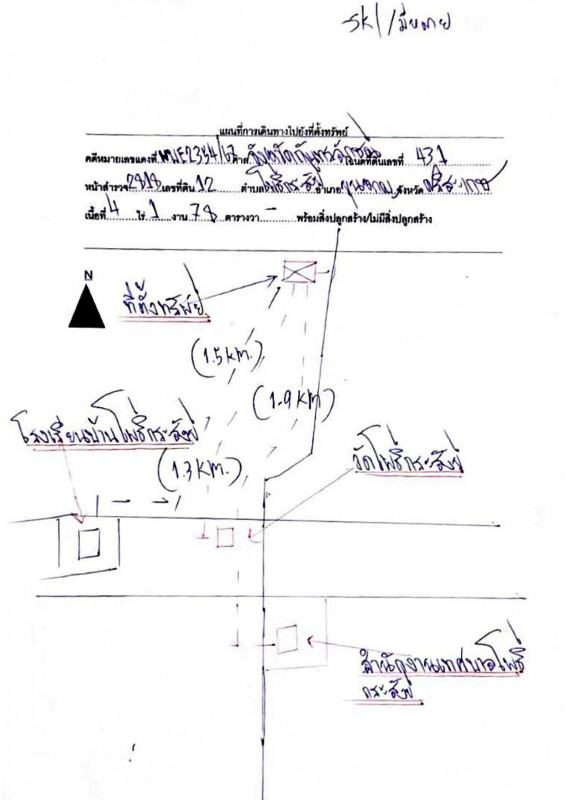 แผนที่การเดินทางไปยังที่ตั้งทรัพย์
คดีหมายเลขแดงที่ ผบE2354/67 ศาล จังหวัดกันทรลักษ์ โฉนดที่ดินเลขที่ 431
หน้าสำรวจ 2818 เลขที่ดิน 12 ตำบล โพธิ์กระสังข์ อำเภอ ขุนหาญ จังหวัด ศรีสะเกษ
เนื้อที่ 4 ไร่ 1 งาน 78 ตารางวา - พร้อมสิ่งปลูกสร้าง/ไม่มีสิ่งปลูกสร้าง
N
ที่ตั้งทรัพย์
(1.5 km.)
(1.9 km)
โรงเรียนบ้านโพธิ์กระสังข์
วัดโพธิ์กระสังข์
(1.3 km.)
สำนักงานเทศบาลโพธิ์
กระสังข์